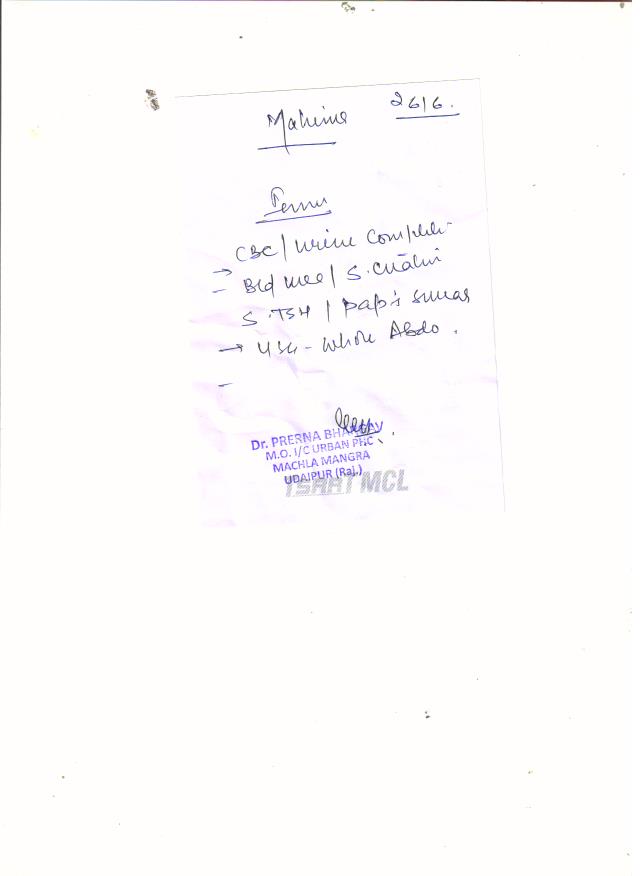 Mahima 26/6.
Temu
→ CBC / Urine Complete
– Bld Urea / S. Creatini
S. TSH / Pap's Smear
→ USG - Whole Abdo.
–
Dr. PRERNA BHARGAV
M.O. I/C URBAN PHC
MACHLA MANGRA
UDAIPUR (Raj.)
MCL